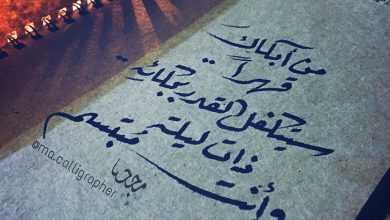 من أبكاك
قهراً
سيتكفل القدر ببكائه
ذات ليلة
وأنت مبتسم
@ma.calligrapher